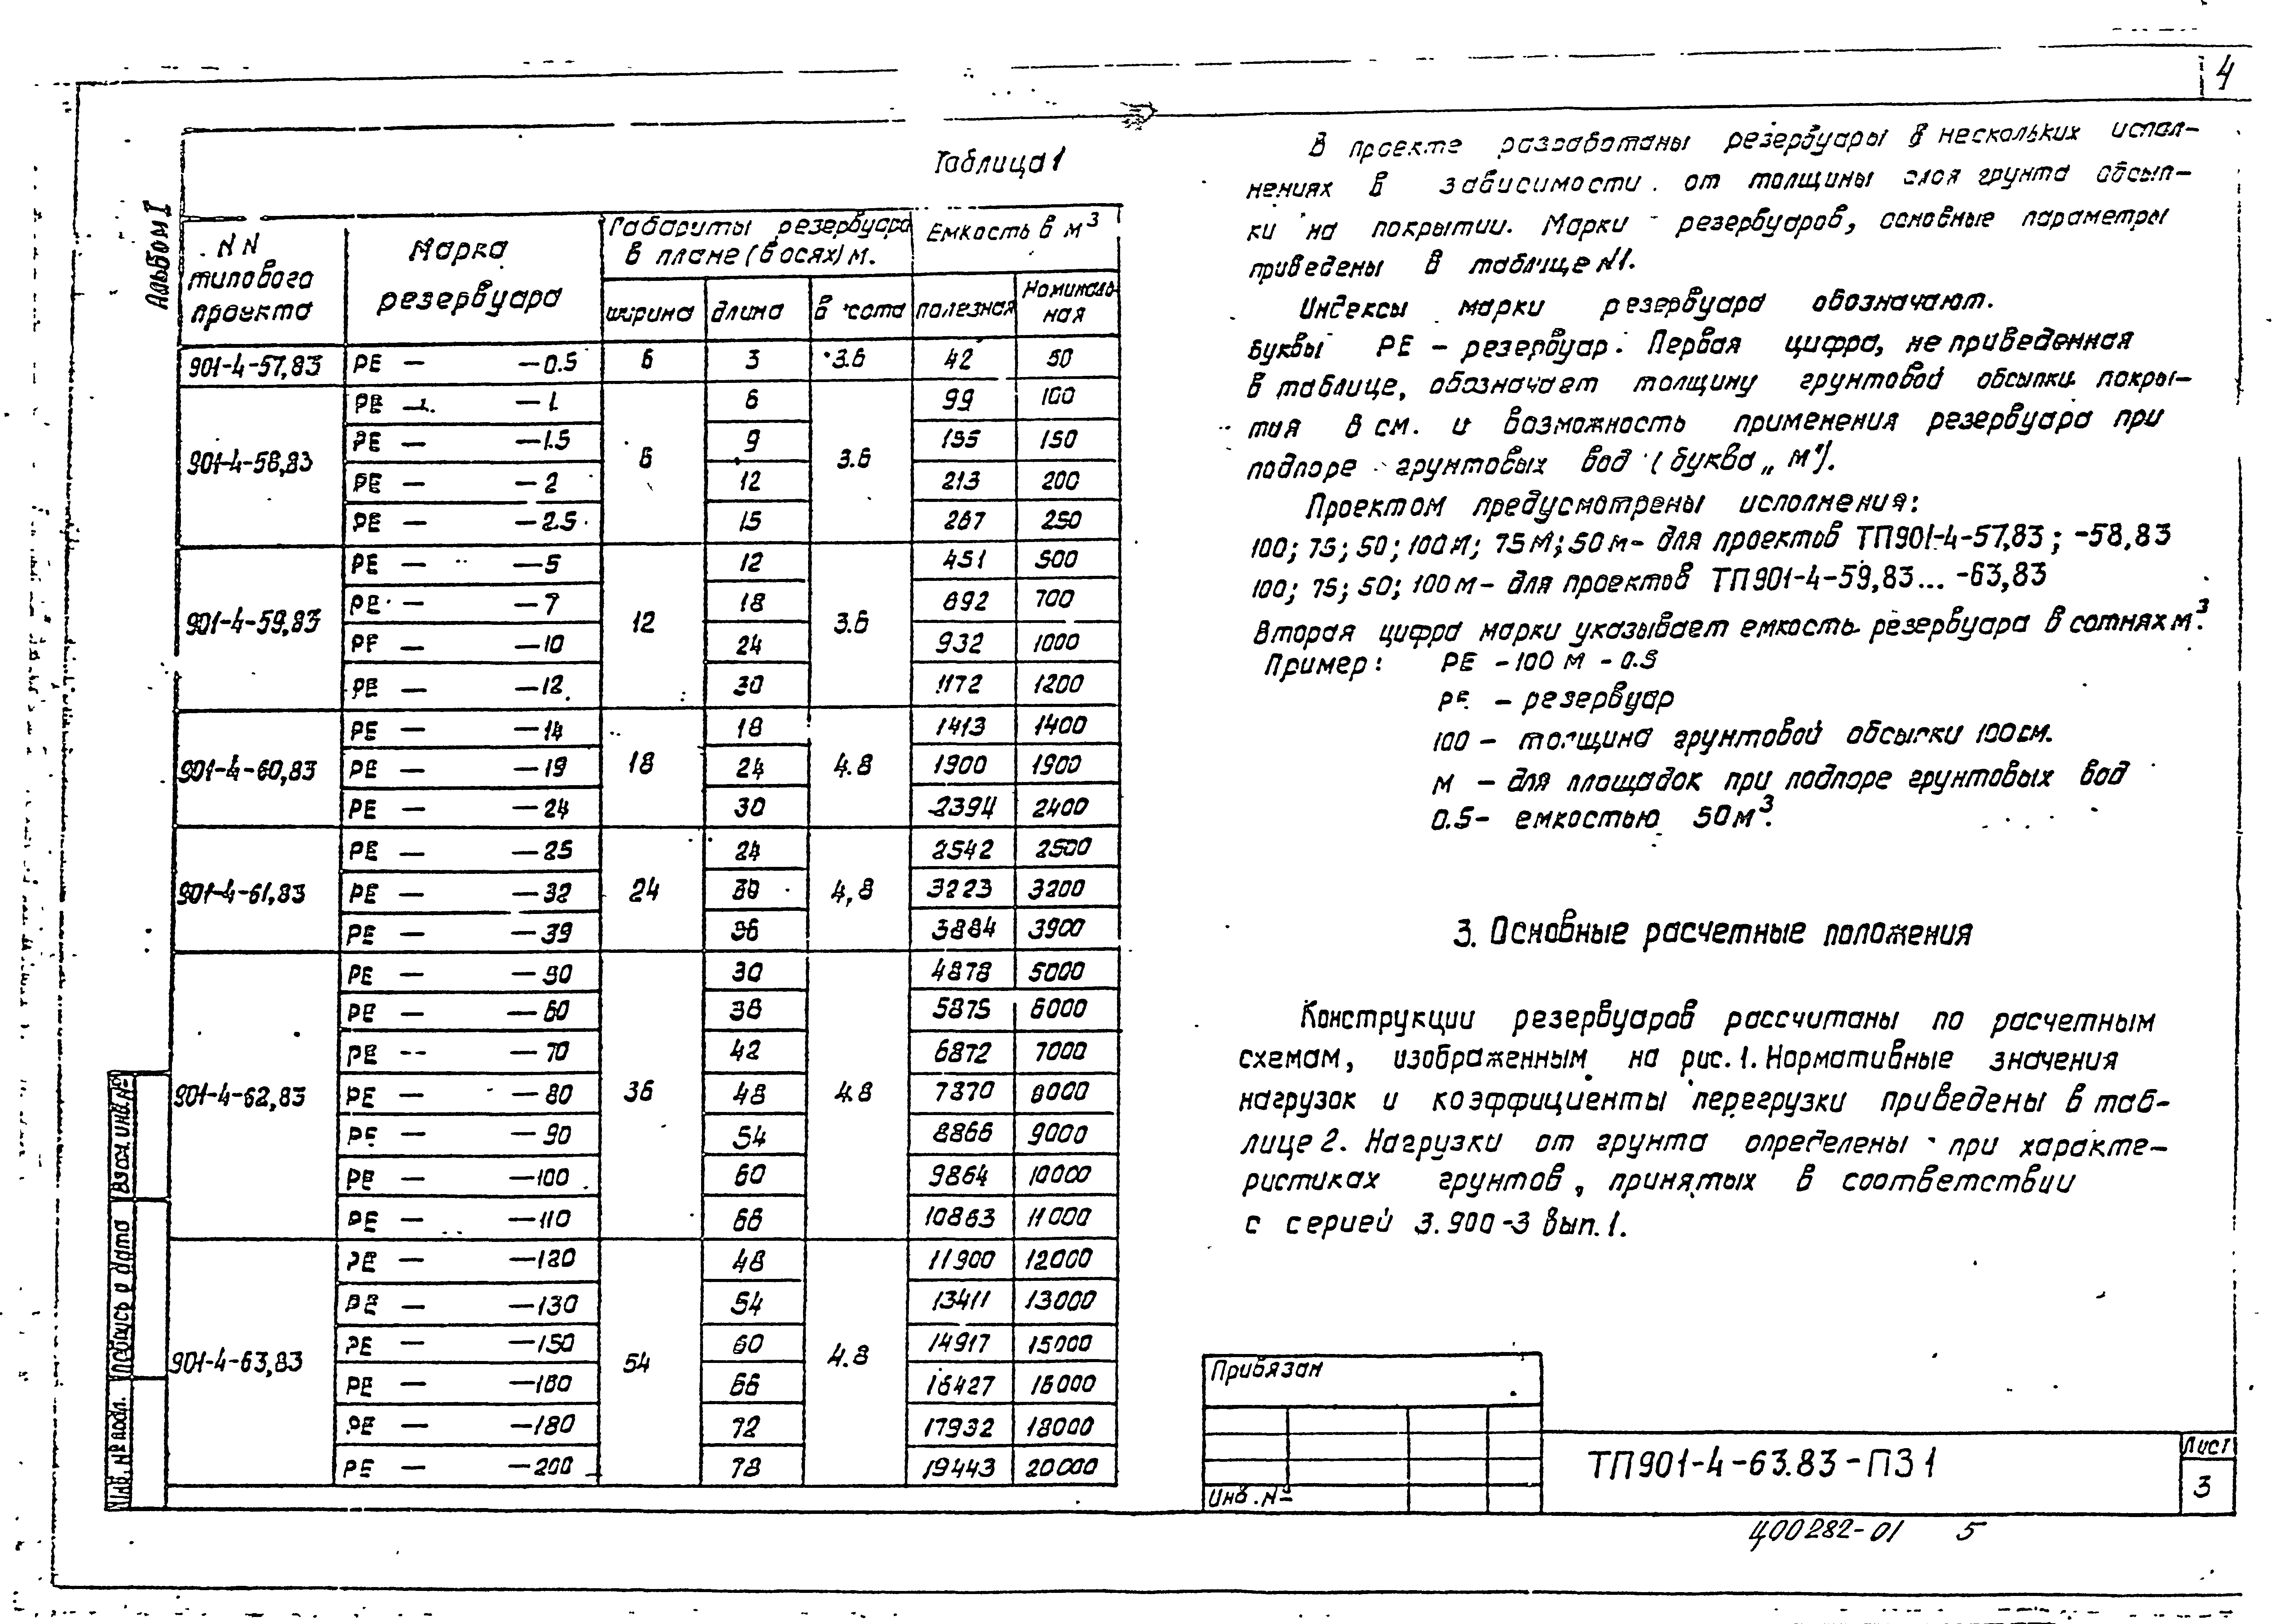 4
Альбом I
Таблица 1
NN типового проекта
Марка резервуара
Габариты резервуара в плане (в осях) м.
Емкость в м³
ширина длина высота полезная Номинальная
901-4-57,83 РЕ — —0.5 6 3 3.6 42 50
901-4-58,83 6 3.6
РЕ — —1 6 99 100
РЕ — —1.5 9 155 150
РЕ — —2 12 213 200
РЕ — —2.5 15 267 250
901-4-59,83 12 3.6
РЕ — —5 12 451 500
РЕ — —7 18 692 700
РЕ — —10 24 932 1000
РЕ — —12 30 1172 1200
901-4-60,83 18 4.8
РЕ — —14 18 1413 1400
РЕ — —19 24 1900 1900
РЕ — —24 30 2394 2400
901-4-61,83 24 4,8
РЕ — —25 24 2542 2500
РЕ — —32 30 3223 3200
РЕ — —39 36 3884 3900
901-4-62,83 36 4.8
РЕ — —50 30 4878 5000
РЕ — —60 36 5875 6000
РЕ — —70 42 6872 7000
РЕ — —80 48 7870 8000
РЕ — —90 54 8866 9000
РЕ — —100 60 9864 10000
РЕ — —110 66 10863 11000
901-4-63,83 54 4.8
РЕ — —120 48 11900 12000
РЕ — —130 54 13411 13000
РЕ — —150 60 14917 15000
РЕ — —160 66 16427 16000
РЕ — —180 72 17932 18000
РЕ — —200 78 19443 20000
В проекте разработаны резервуары в нескольких испол-
нениях в зависимости от толщины слоя грунта обсып-
ки на покрытии. Марки резервуаров, основные параметры
приведены в таблице N1.
Индексы марки резервуара обозначают.
буквы РЕ – резервуар. Первая цифра, не приведенная
в таблице, обозначает толщину грунтовой обсыпки покры-
тия в см. и возможность применения резервуара при
подпоре грунтовых вод (буква „М").
Проектом предусмотрены исполнения:
100; 75; 50; 100М; 75М; 50М – для проектов ТП901-4-57,83; -58,83
100; 75; 50; 100М – для проектов ТП901-4-59,83... -63,83
Вторая цифра марки указывает емкость резервуара в сотнях м³.
Пример: РЕ – 100 М – 0.5
РЕ – резервуар
100 – толщина грунтовой обсыпки 100см.
М – для площадок при подпоре грунтовых вод
0.5 – емкостью 50м³.
3. Основные расчетные положения
Конструкции резервуаров рассчитаны по расчетным
схемам, изображенным на рис. 1. Нормативные значения
нагрузок и коэффициенты перегрузки приведены в таб-
лице 2. Нагрузки от грунта определены при характе-
ристиках грунтов, принятых в соответствии
с серией 3.900-3 вып. 1.
Взам. инв. №
Подпись и дата
Инв. № подл.
Привязан
Инв. №
ТП901-4-63.83-ПЗ1
Лист
3
400282-01 5